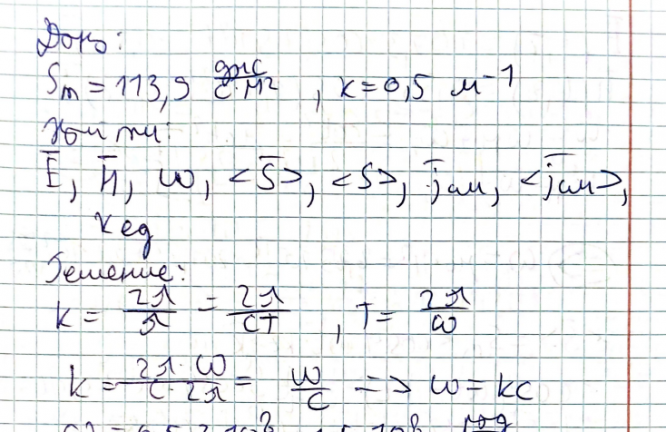 Дано:
Sm = 113,9 дж/с·м², k = 0,5 м⁻¹
Найти:
E̅, H̅, ω, <S̅>, <S>, j̅см, <j̅см>,
Kед
Решение:
k = 2π/λ = 2π/cT, T = 2π/ω
k = 2π·ω/c·2π = ω/c => ω = kc